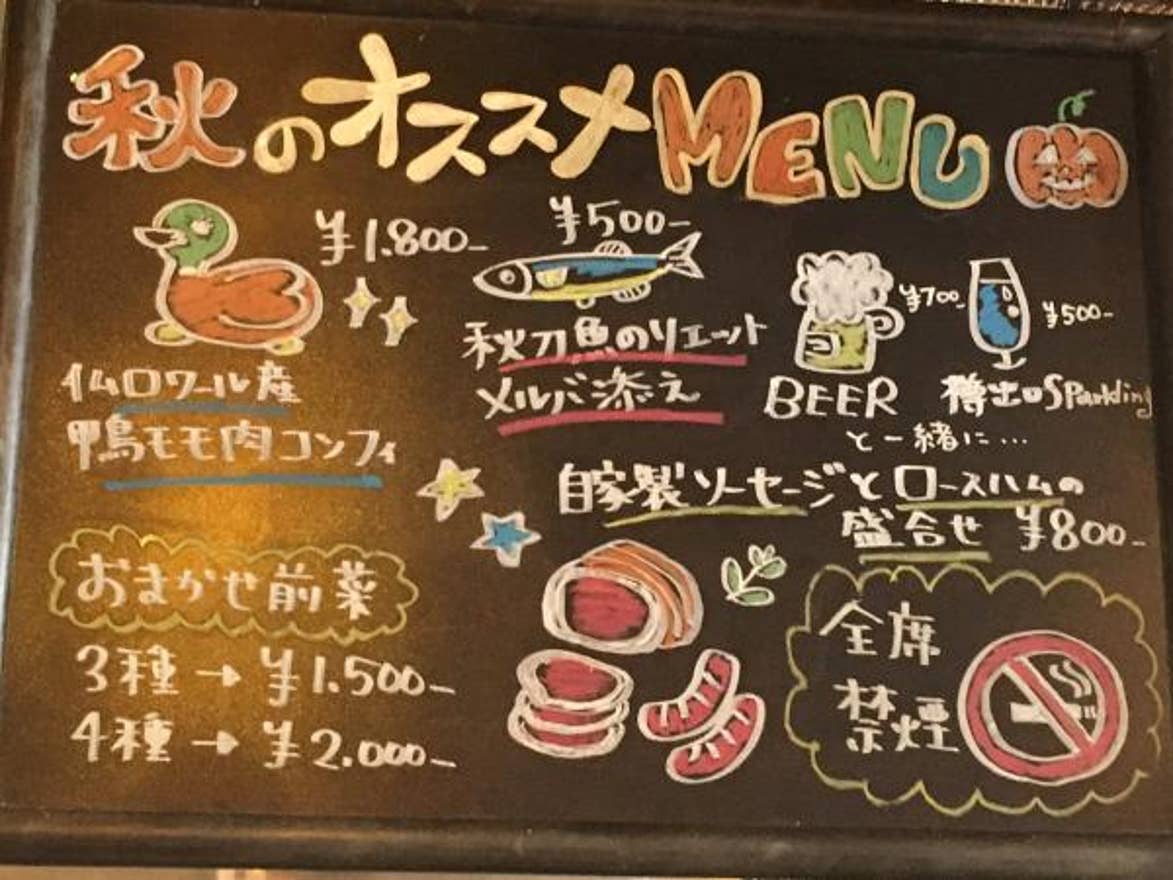 秋のオススメMENU
¥1.800-
仏ロワール産
鴨モモ肉コンフィ
¥500-
秋刀魚のリエット
メルバ添え
¥700-
BEER
¥500-
樽出しSparkling
と一緒に…
自家製ソーセージとロースハムの
盛合せ ¥800-
おまかせ前菜
3種→¥1.500-
4種→¥2.000-
全席
禁煙